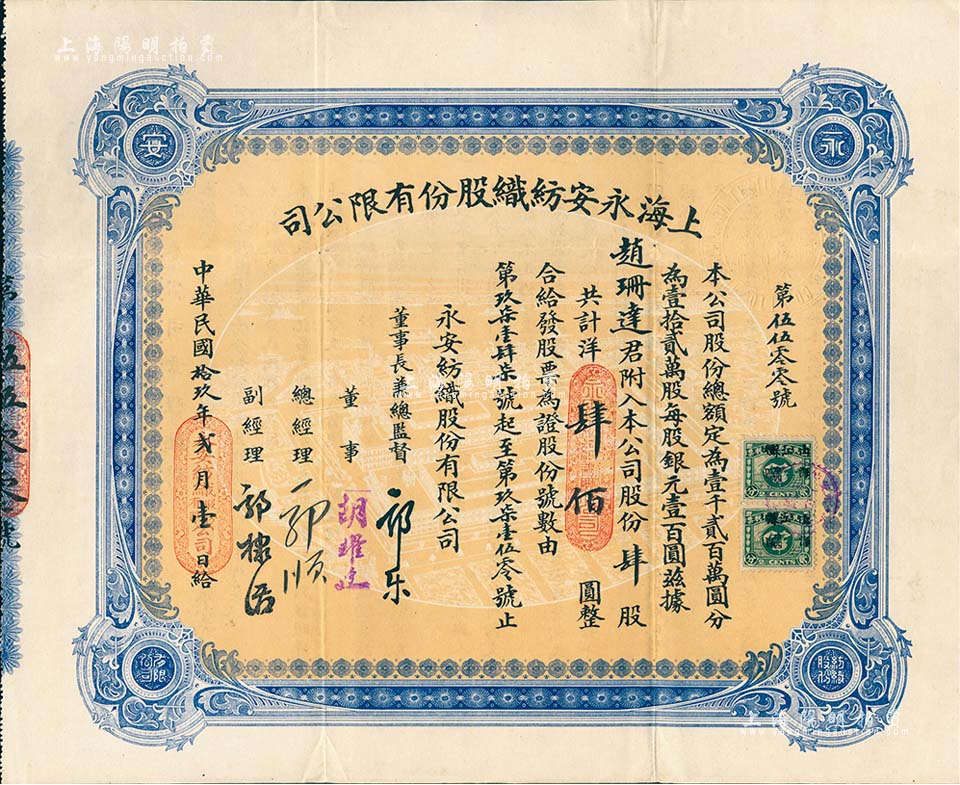 上海陽明拍賣
www.yangmingauction.com
永
安
紡織股份
有限公司
上海永安紡織股份有限公司
第伍伍零零號
本公司股份總額定為壹千貳百萬圓分
為壹拾貳萬股每股銀元壹百圓茲據
趙珊達君附入本公司股份肆股
共計洋肆佰圓整
合給發股票為證股份號數由
第玖柒壹肆柒號起至第玖柒壹伍零號止
永安紡織股份有限公司
董事長兼總監督 郭樂
董事
總經理 郭順
副經理 郭棣活
中華民國拾玖年貳月壹日給
2 CENTS
2 CENTS
伍伍零零號
上海陽明拍賣
www.yangmingauction.com
上海陽明拍賣
www.yangmingauction.com